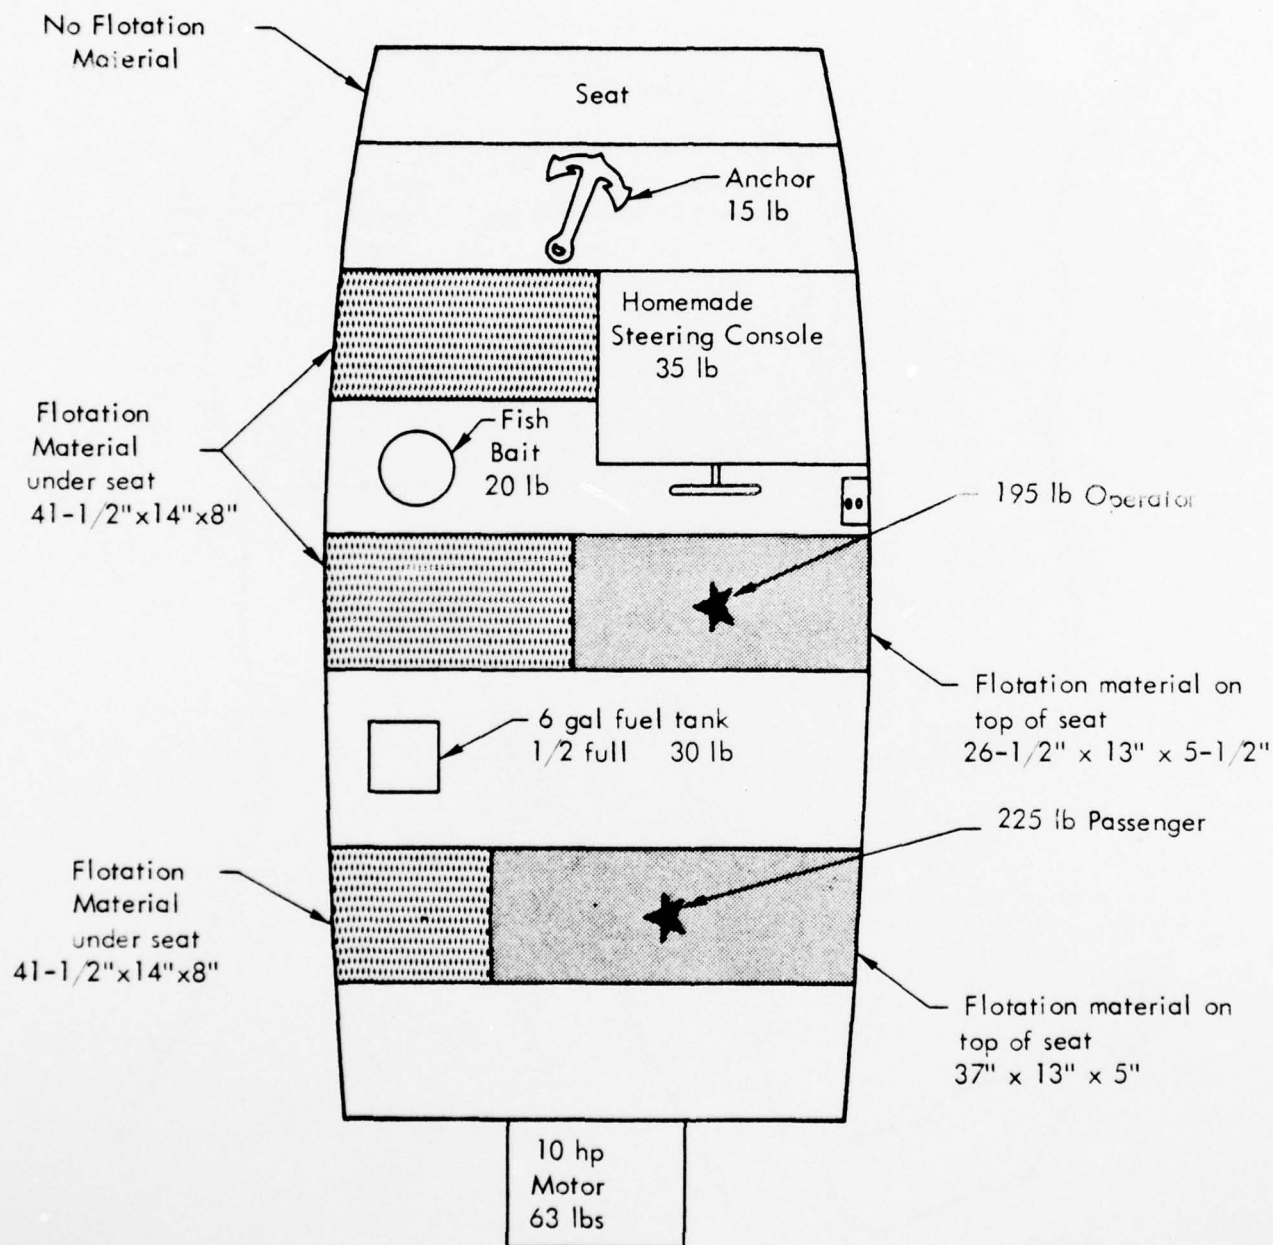 No Flotation
Material
Seat
Anchor
15 lb
Homemade
Steering Console
35 lb
Flotation
Material
under seat
41-1/2"x14"x8"
Fish
Bait
20 lb
195 lb Operator
Flotation material on
top of seat
26-1/2" x 13" x 5-1/2"
6 gal fuel tank
1/2 full 30 lb
225 lb Passenger
Flotation
Material
under seat
41-1/2"x14"x8"
Flotation material on
top of seat
37" x 13" x 5"
10 hp
Motor
63 lbs